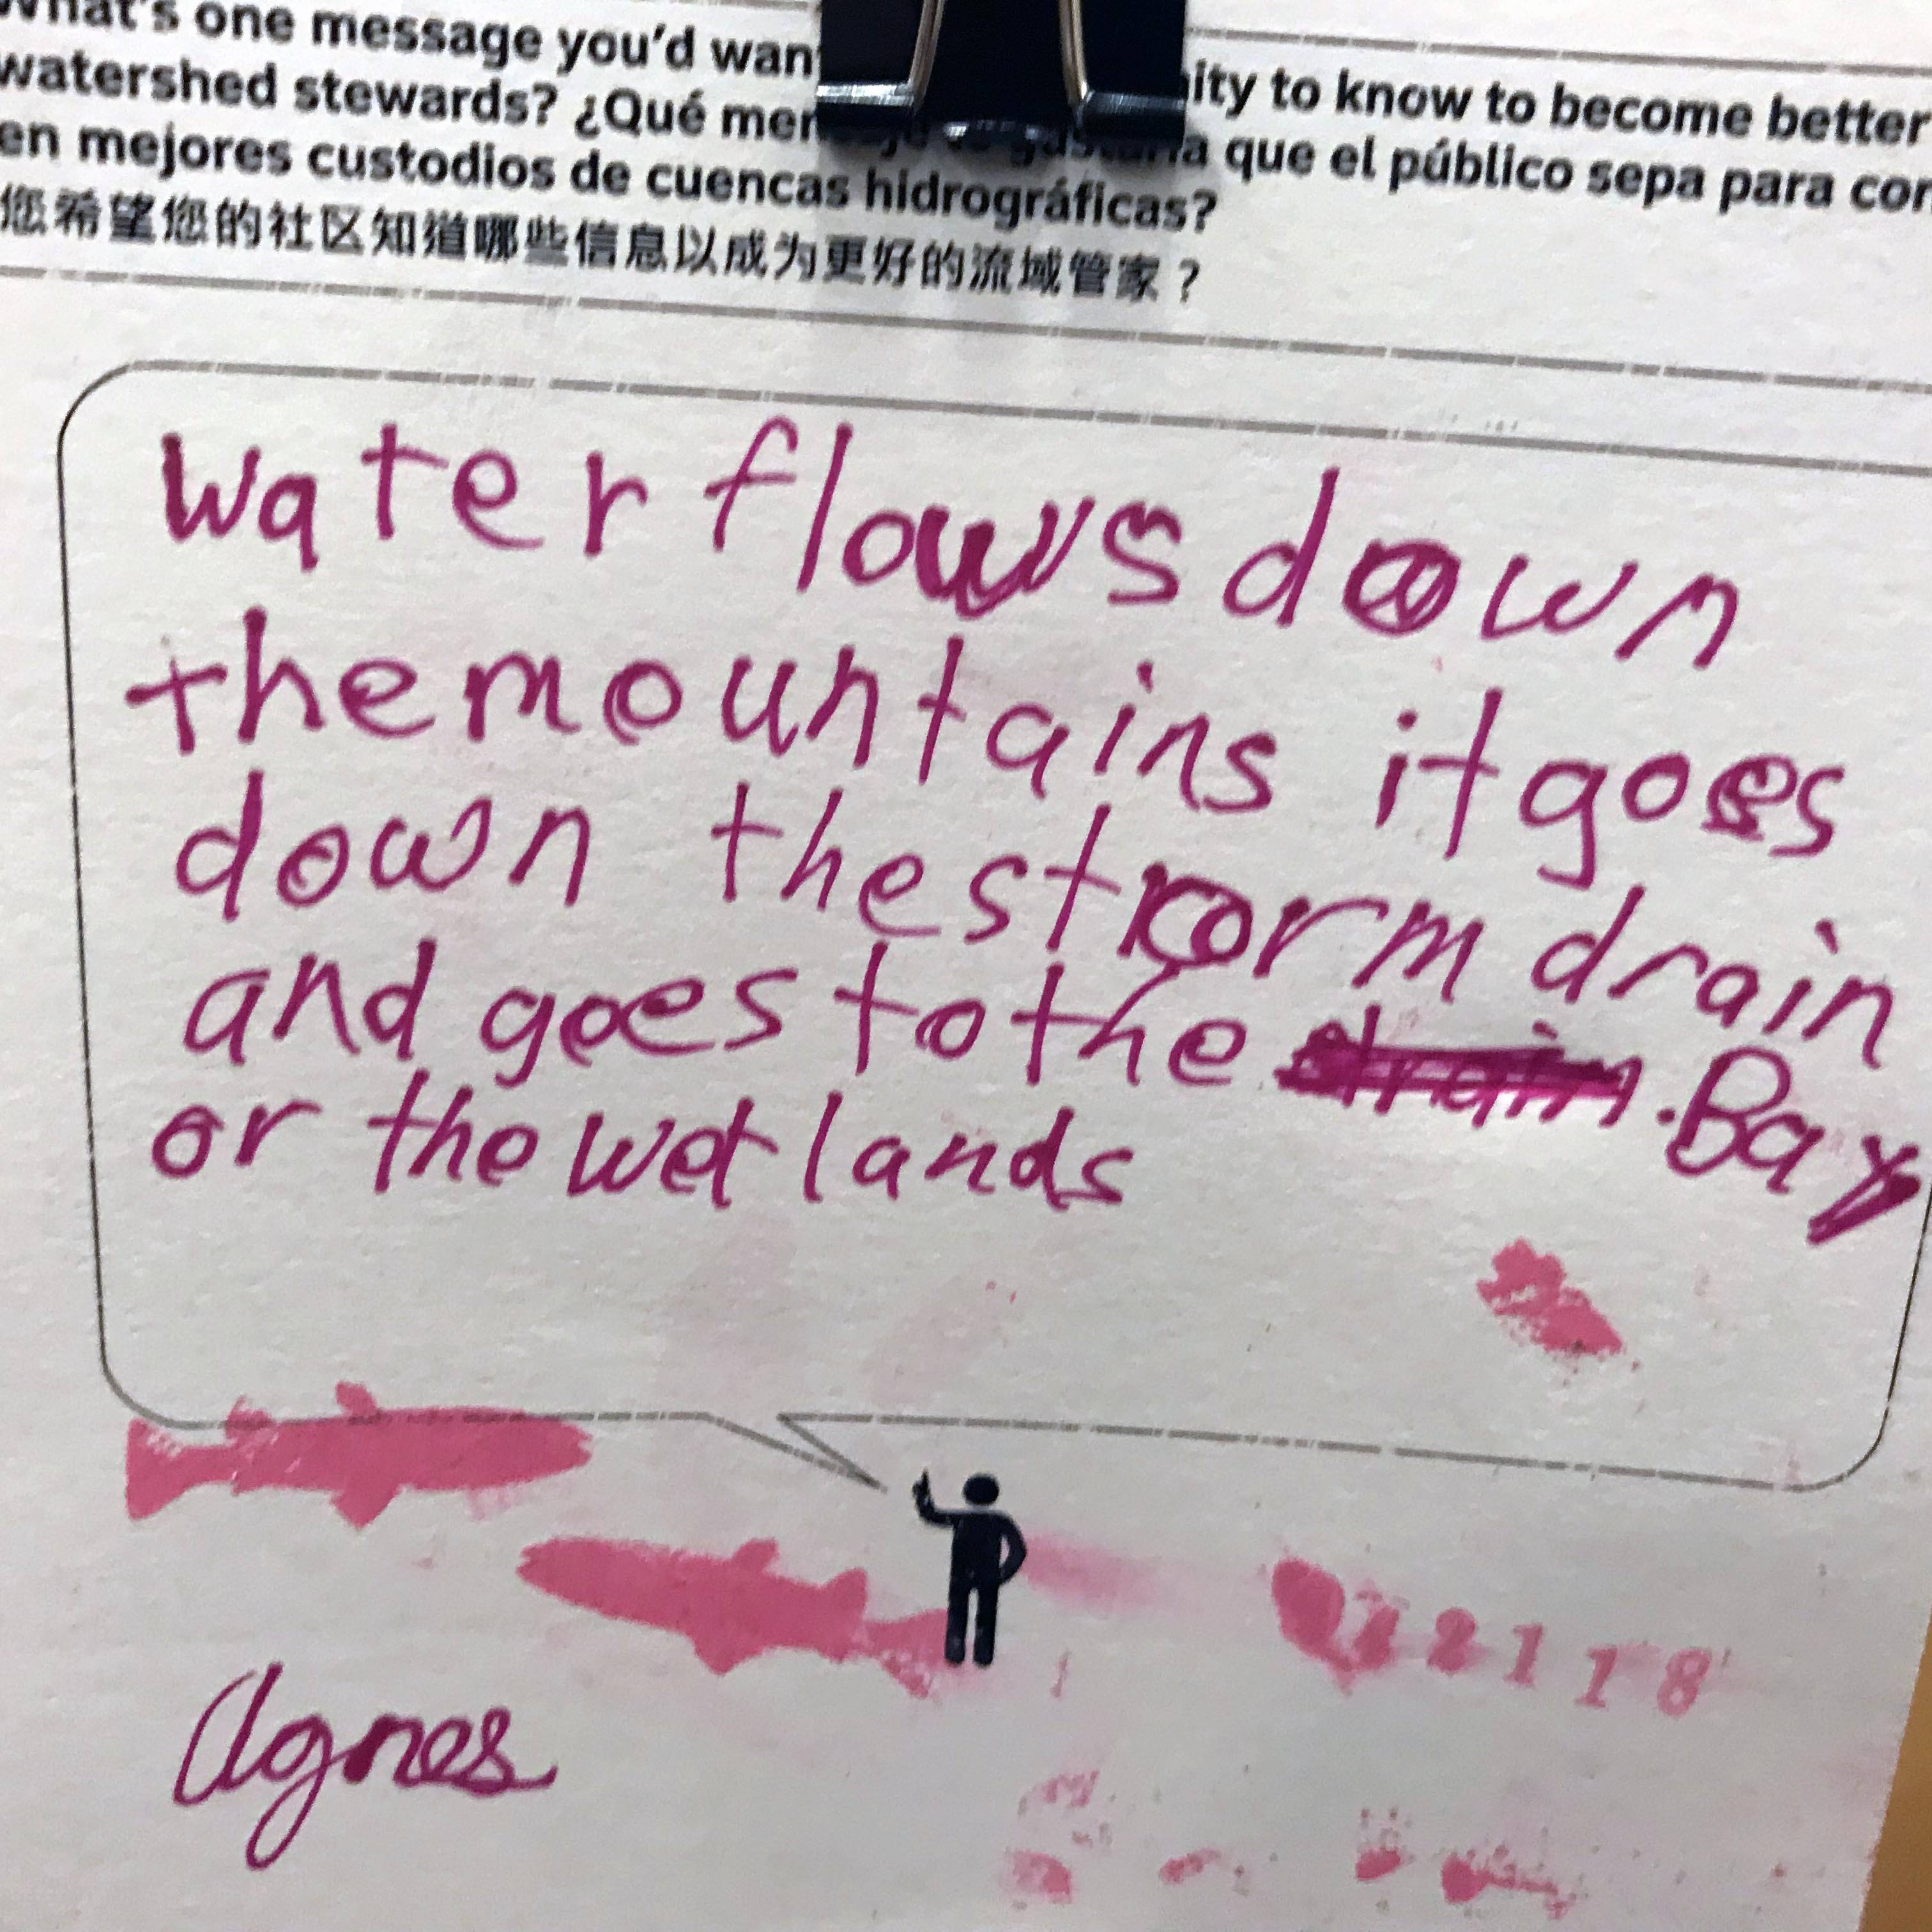 What's one message you'd want ity to know to become better
watershed stewards? ¿Qué mensaje le gustaría que el público sepa para con
en mejores custodios de cuencas hidrográficas?
您希望您的社区知道哪些信息以成为更好的流域管家？
water flows down
the mountains it goes
down the storm drain
and goes to the Bay
or the wetlands
2118
Agnes